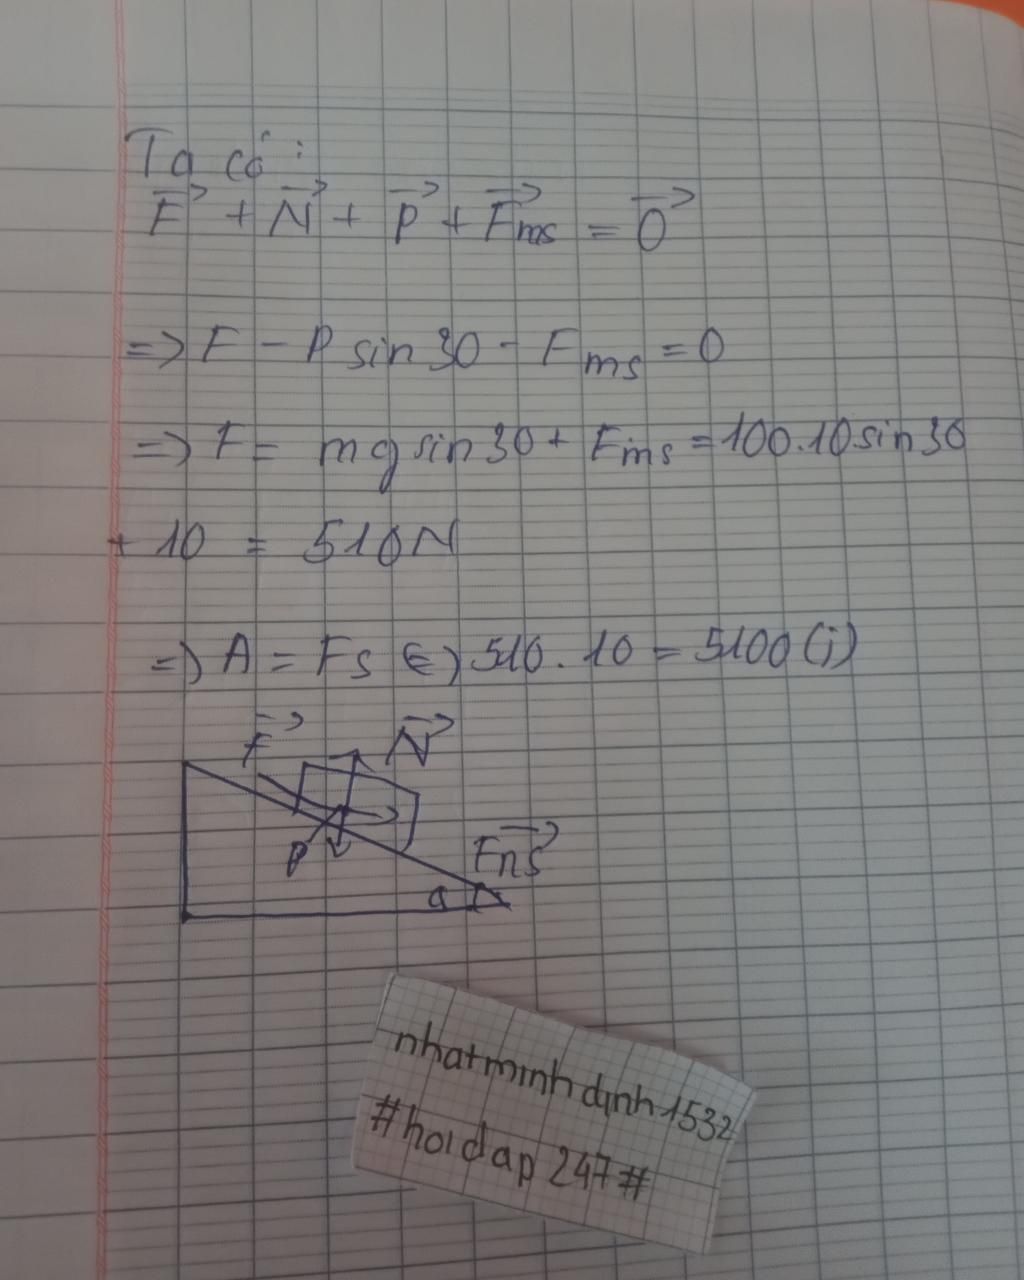 Ta có:
F⃗ + N⃗ + P⃗ + F⃗ms = 0⃗
=> F - P sin 30 - Fms = 0
=> F = mg sin 30 + Fms = 100.10 sin 30
+ 10 = 510N
=> A = Fs (=) 510.10 = 5100 (j)
F⃗ N⃗
P F⃗ms
a
nhatminhdinh1532
#hoidap 247#